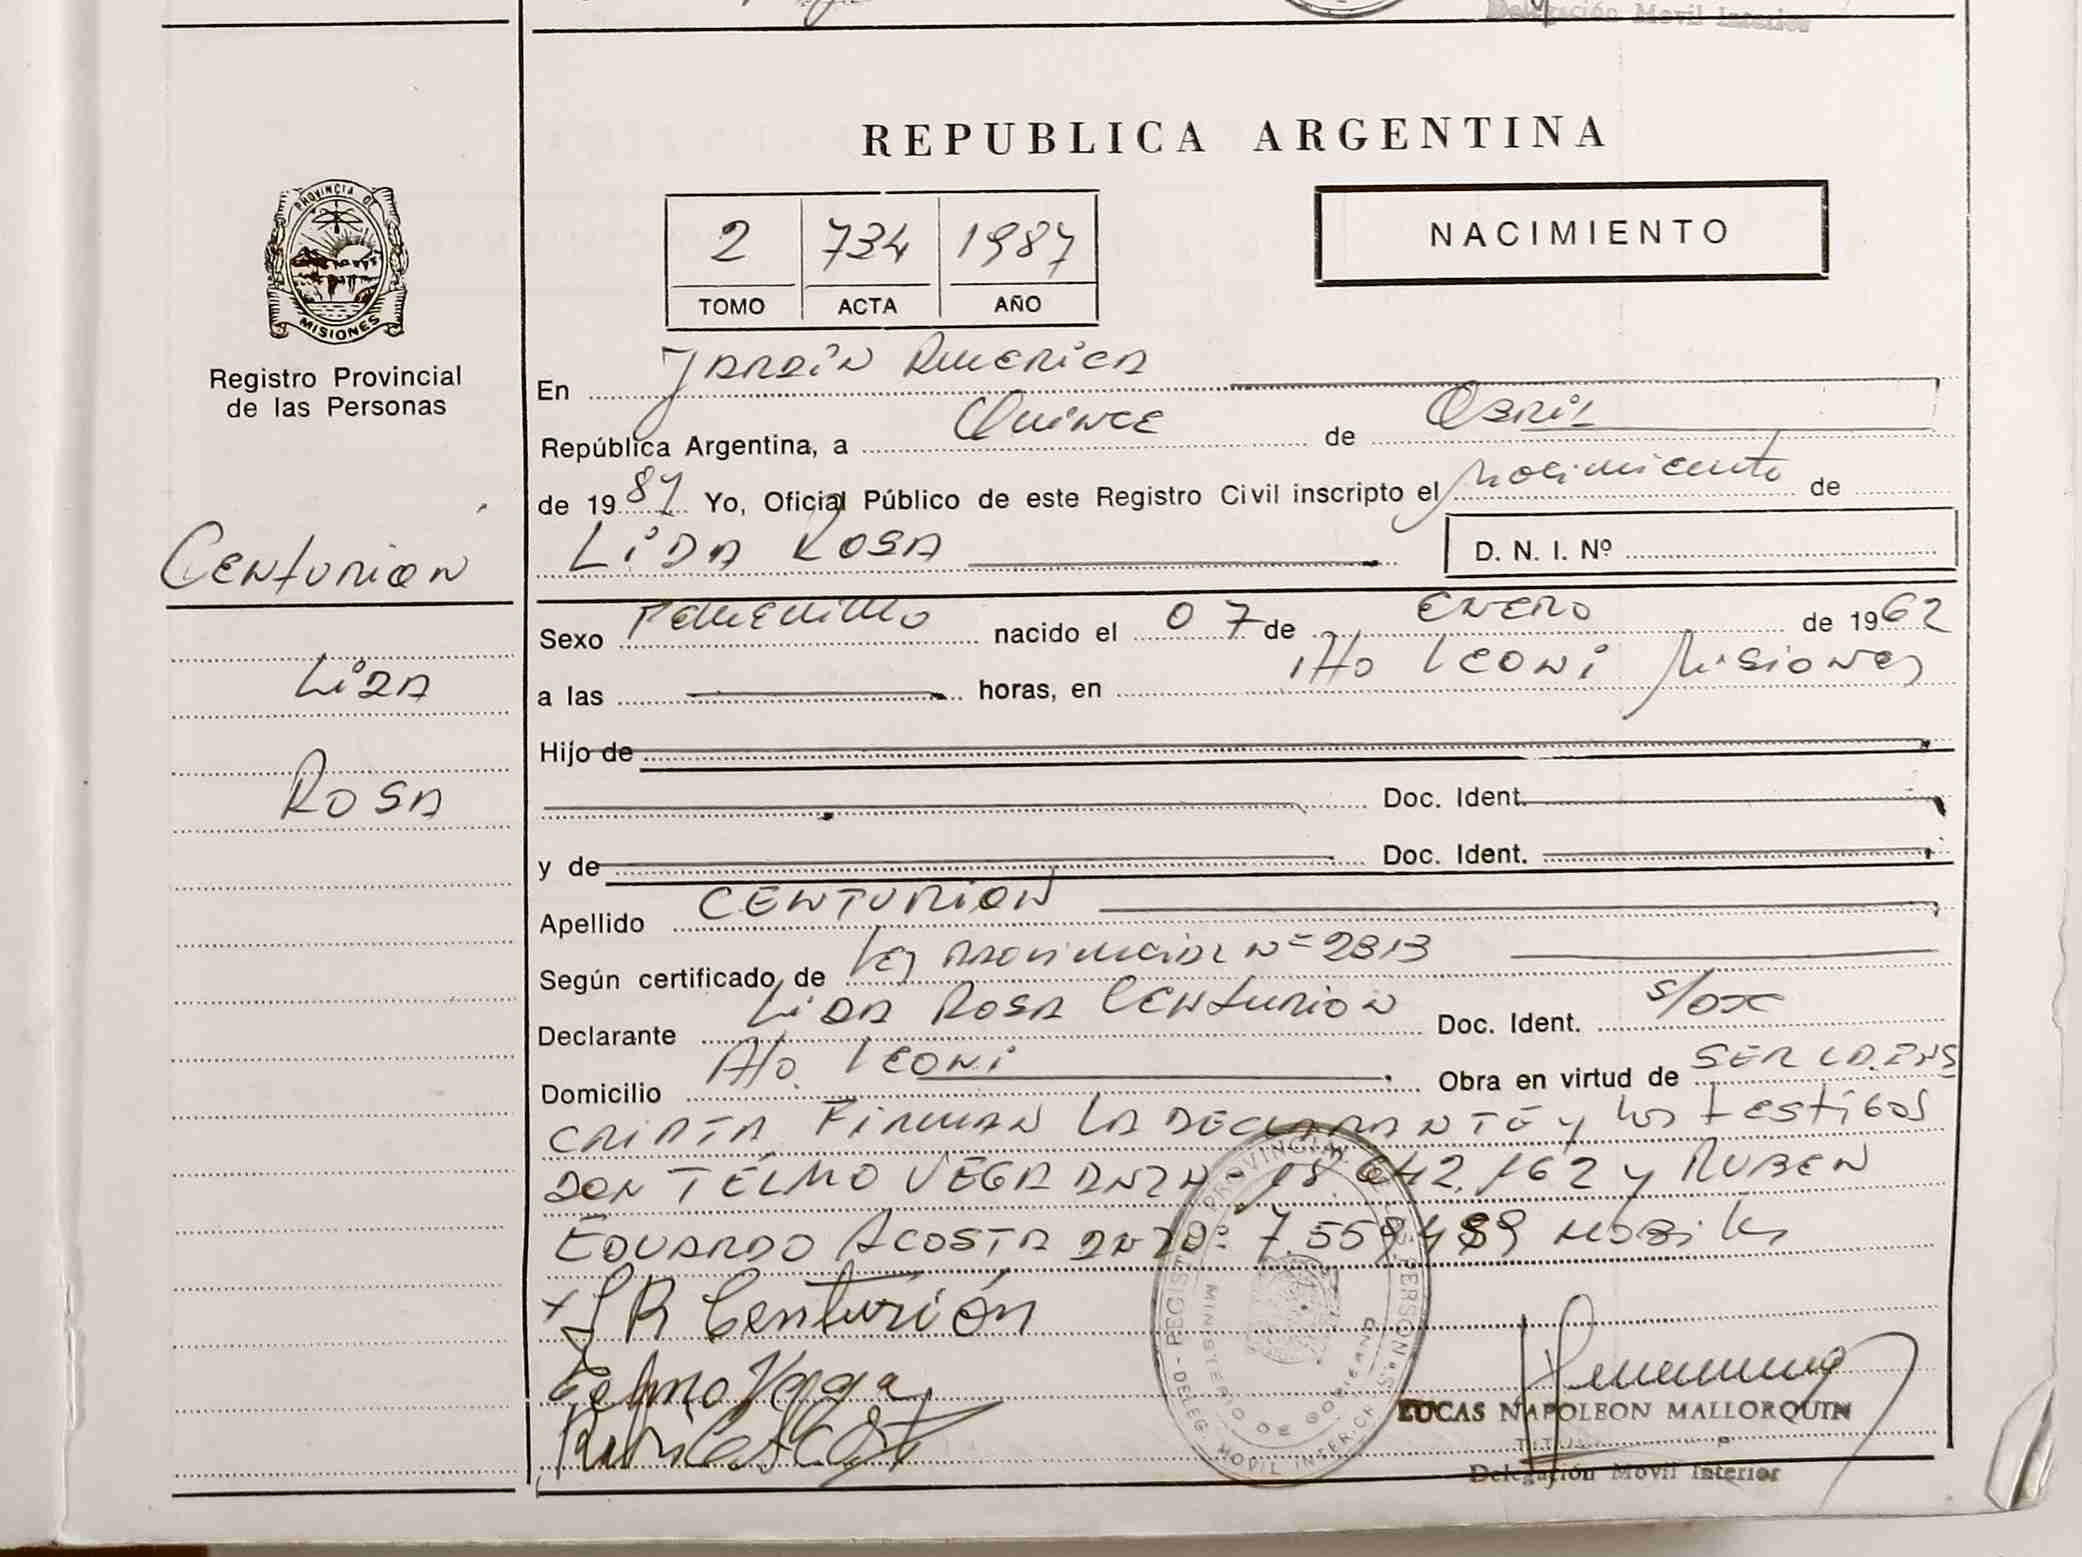 Delegación Movil Interior
REPUBLICA ARGENTINA
PROVINCIA DE
MISIONES
Registro Provincial
de las Personas
2 734 1987
TOMO ACTA AÑO
NACIMIENTO
En Jardín America
República Argentina, a Quince de Abril
de 1987 Yo, Oficial Público de este Registro Civil inscripto el Nacimiento de
Centurion
Lida Rosa D. N. I. Nº
Sexo Femenino nacido el 07 de ENERO de 1962
Lida
a las horas, en Hto Leoni Misiones
Hijo de
Rosa
Doc. Ident.
y de Doc. Ident.
Apellido CENTURION
Según certificado de Ley Provincial Nº 2313
Declarante Lida Rosa Centurion Doc. Ident.
Domicilio Hto. Leoni Obra en virtud de SER LA INS
CRIPTA Firman LA DECLARANTE y los testigos
DON TELMO VEGA DNI Nº 18.642.162 y RUBEN
EDUARDO ACOSTA DNI Nº 7.559.489
x L R Centurión
Telmo Vega
REGISTRO PROVINCIAL DE LAS PERSONAS
MINISTERIO DE GOBIERNO
DELEG. MOVIL INTERIOR
LUCAS NAPOLEON MALLORQUIN
Delegación Movil Interior